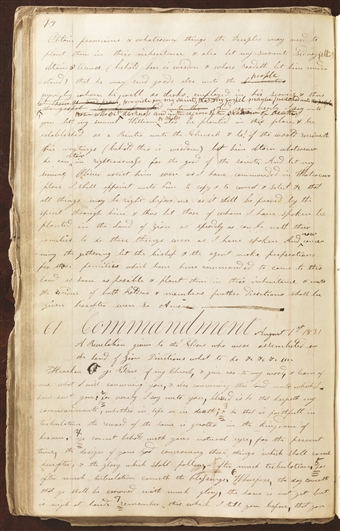 Obtain provisions & whatsoever things the Deciples may need to
plant them in their inheritance & also let my servent Sidney
obtain a licence (behold here is wisdom & whoso readeth let him under
stand) that he may send goods also unto the people
even by whom he will as clerks employed in his service & thus
provide for my saints that my Gospel may be preached unto
those who sit in darkness and in the region
let my servent William
established as a Printer unto the Church & lo if the world receiveth
his writings (behold this is wisdom) let him obtain whatsoever
he can in righteousness for the good of the saints And let my
servent Oliver assist him even as I have commanded in whatsoever
place I shall appoint unto him to copy & to correct & select &c that
all things may be right before me as it shall be proved by the
spirit through him & thus let those of whom I have spoken be
planted in the Land of Zion as speedily as can be with their
families to do these things even as I have spoken And now concer
ning the gethering let the bishop & the agent make preparations
for families which have been commanded to come to this
land as soon as possable & plant them in their inheritance & unto
the residue of both Elders & members further directions shall be
given hereafter even so Amen
61 Commandment August 1st 1831
A Revelation given to the Elders who were assembled on
the land of Zion Directions what to do &c &c &c
Hearken O ye Elders of my Church & give ear to my word & learn of
me what I will concerning you & also concerning this land unto which I
have sent you for verily I say unto you blessed is he that keepeth my
commandments whether in life or in death & he that is faithfull in
tribulation the reward of the same is greater in the kingdom of
heaven ye cannot behold with your natural eyes for the present
time the design of your God concerning those things which shall come
hereafter & the glory which shall follow after much tribulation for
after much tribulation cometh the blessings Wherefore the day cometh
that ye shall be crowned with much glory the hour is not yet but
is nigh at hand remember this which I tell you before that you